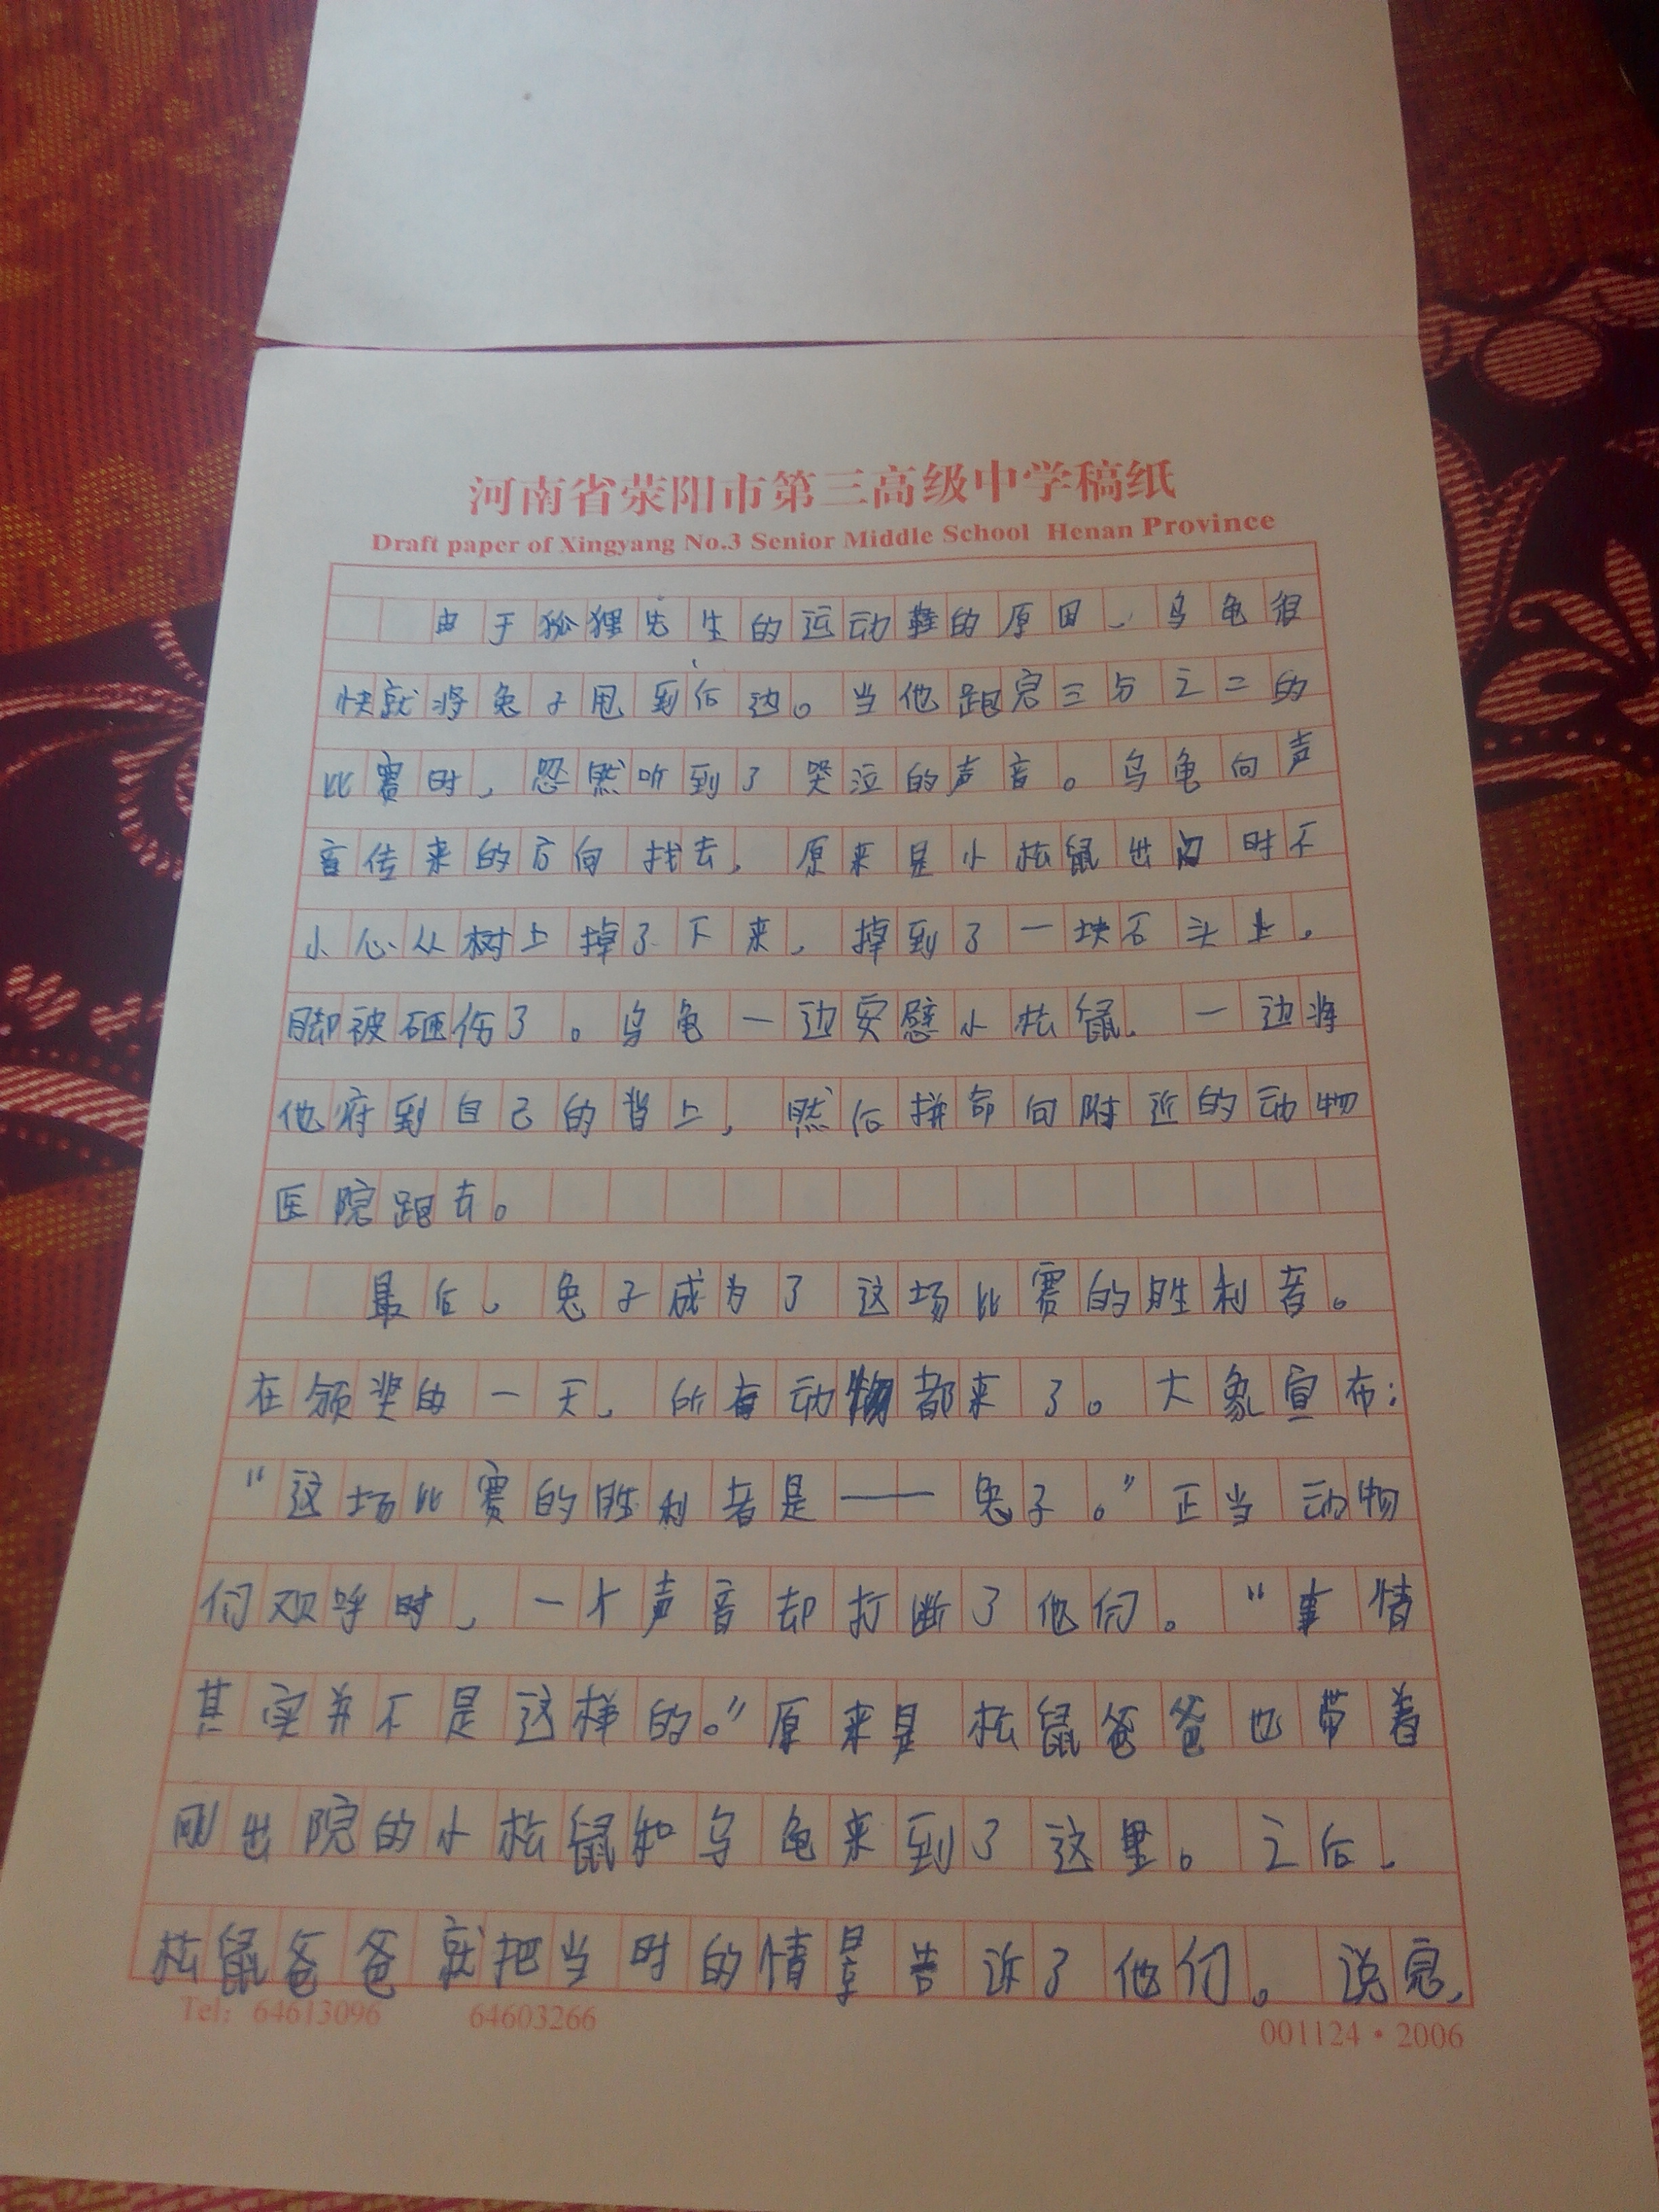 河南省荥阳市第三高级中学稿纸
Draft paper of Xingyang No.3 Senior Middle School Henan Province
由于狐狸先生的运动鞋的原因，乌龟很
快就将兔子甩到后边。当他跑完三分之二的
比赛时，忽然听到了哭泣的声音。乌龟向声
音传来的方向找去，原来是小松鼠出门时不
小心从树上掉了下来，掉到了一块石头上，
脚被砸伤了。乌龟一边安慰小松鼠，一边将
他府到自己的背上，然后拼命向附近的动物
医院跑去。
最后，兔子成为了这场比赛的胜利者。
在颁奖的一天，所有动物都来了。大象宣布：
“这场比赛的胜利者是——兔子。”正当动物
们欢呼时，一个声音却打断了他们。“事情
其实并不是这样的。”原来是松鼠爸爸也带着
刚出院的小松鼠和乌龟来到了这里。之后，
松鼠爸爸就把当时的情景告诉了他们。说完，
Tel: 64613096 64603266
001124·2006